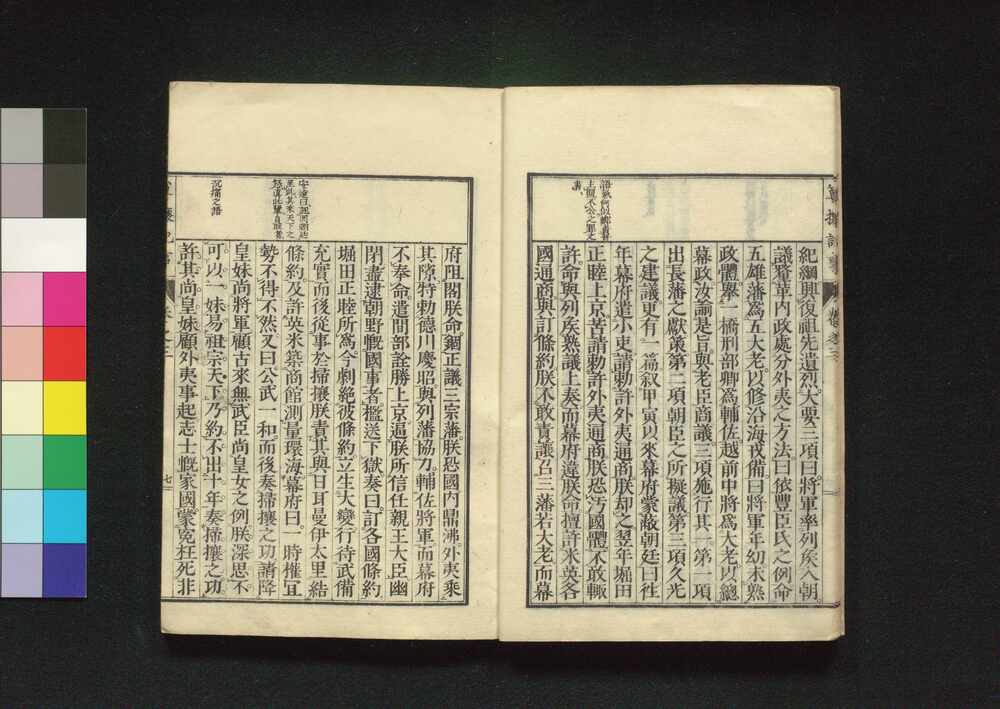 紀綱興復祖先遺烈大要三項曰將軍率列矦入朝
議釐革内政處分外夷之方法曰依豐臣氏之例命
五雄藩為五大老以修沿海戎備曰將軍年幼未熟
政體舉一橋刑部卿為輔佐越前中將為大老以總
幕政汝諭是旨與老臣商議三項施行其一第一項
出長藩之獻策第二項朝臣之所擬議第三項久光
之建議更有一篇叙甲寅以來幕府蒙蔽朝廷曰往
年幕府遣小吏請勅許外夷通商朕却之翌年堀田
正睦上京苦請勅許外夷通商朕恐汚國體不敢輙
許命與列矦熟議上奏而幕府違朕命擅許米英各
國通商與訂條約朕不敢責讓召三藩若大老而幕
府阻閣朕命錮正議三宗藩朕恐國内鼎沸外夷乘
其隙特勅德川慶昭與列藩協力輔佐將軍而幕府
不奉命遣間部詮勝上京逼朕所信任親王大臣幽
閉盡逮朝野慨國事者檻送下獄奏曰訂各國條約
堀田正睦所為今劇絶彼條約立生大變行待武備
充實而後從事於掃攘朕責其與日耳曼伊太里結
條約及許英米築商館測量環海幕府曰一時權宜
勢不得不然又曰公武一和而後奏掃攘之功請降
皇妹尚將軍顧古來無武臣尚皇女之例朕深思不
可以一妹易祖宗天下乃約不出十年奏掃攘之功
許其尚皇妹顧外夷事起志士慨家國蒙冤枉死非
沉痛之語
卷之三
七